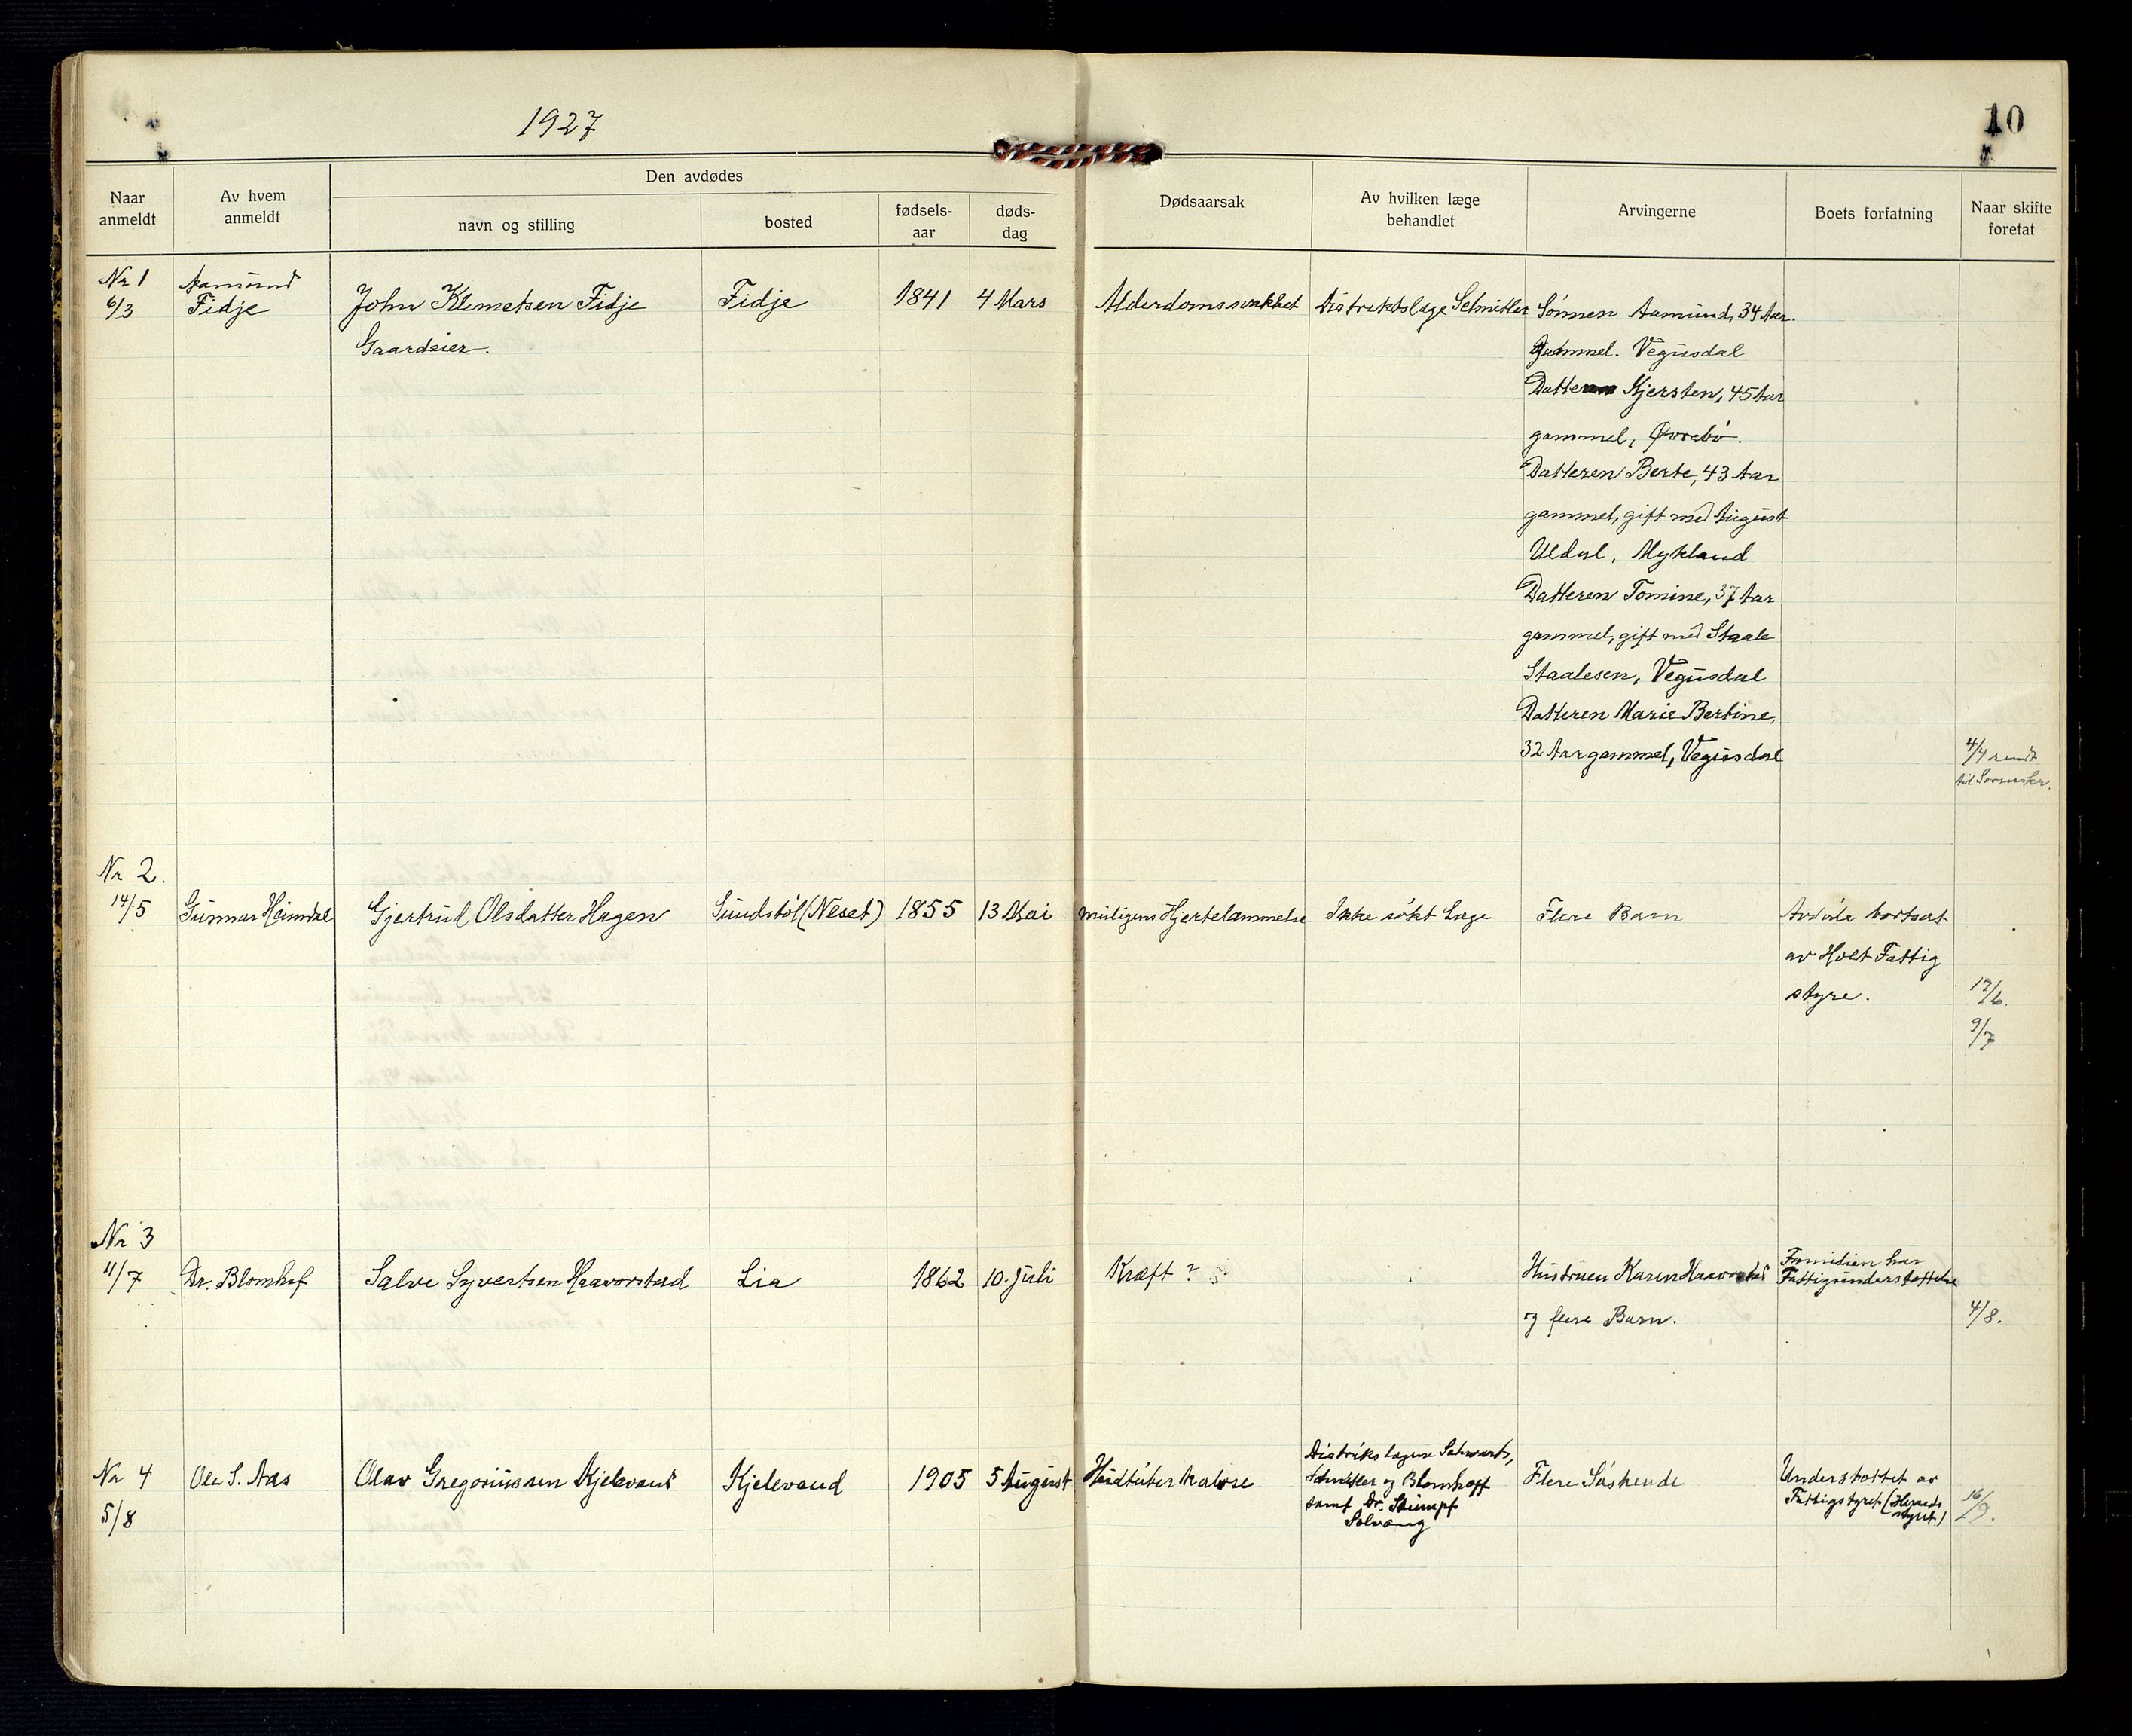 1927
10
Naar anmeldt
Av hvem anmeldt
Den avdødes
navn og stilling
bosted
fødsels-aar
døds-dag
Dødsaarsak
Av hvilken læge behandlet
Arvingerne
Boets forfatning
Naar skifte foretat
Nr 1
6/3
Aamund
Fidje
John Klemetsen Fidje
Gaardeier.
Fidje
1841
4 Mars
Alderdomssvakhet
Distriktslæge Schmitler
Sønnen Aamund, 34 Aar.
gammel. Vegusdal
Datteren Kjersten, 45 Aar
gammel, Øvrebø.
Datteren Berte, 43 Aar
gammel, gift med August
Uldal, Mykland
Datteren Tomine, 37 Aar
gammel, gift med Staale
Staalesen, Vegusdal
Datteren Marie Bertine,
32 Aar gammel, Vegusdal
4/4 sendt
til Sorenskr.
Nr 2.
14/5
Gunnar Heimdal
Gjertrud Olsdatter Hagen
Sundstøl (Neset)
1855
13 Mai
muligens Hjertelammelse
Ikke søkt Læge
Flere Barn
Avdøde bortsat
av Holt Fattig
styre.
17/6.
9/7
Nr 3
11/7
Dr. Blomhof
Salve Syvertsen Haavorstad
Lia
1862
10. juli
Kræft ?
Hustruen Karen Haavorstad
og flere Barn.
Familien har
Fattigunderstøttelse
4/8.
Nr 4
5/8
Ole S. Aas
Olav Gregoriussen Kjelevand
Kjelevand
1905
5 August
Hudtuberkulose
Distriktslægene Schwartz,
Schmitler og Blomhoff
samt Dr. Stumpf
Solvang
Flere Søskende
Understøttet av
Fattigstyret (Hereds
styret)
16/9.